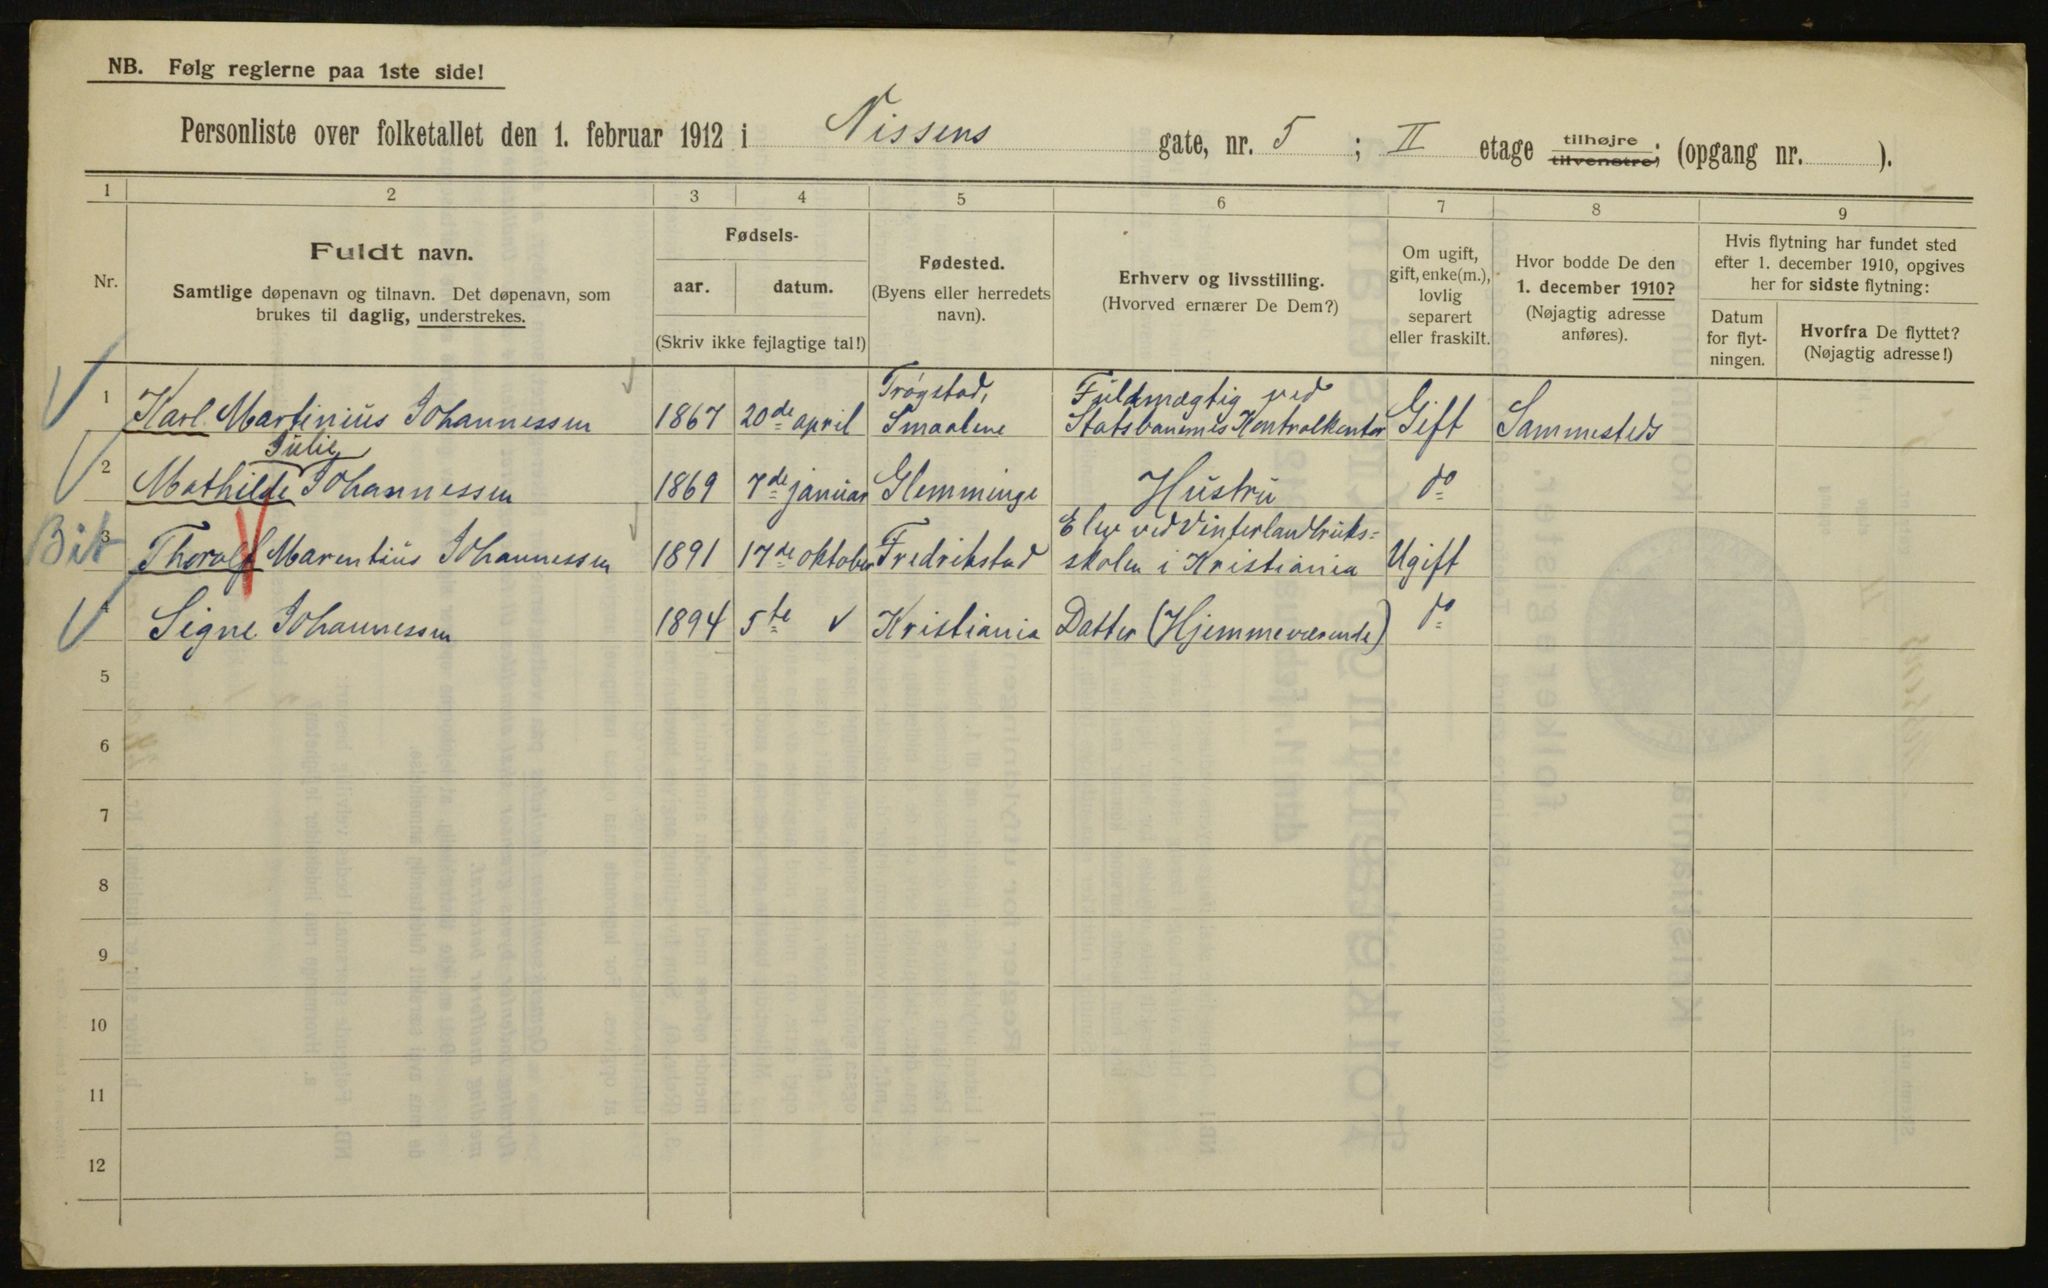 NB. Følg reglerne paa 1ste side!
Personliste over folketallet den 1. februar 1912 i Nissens gate, nr. 5 ; II etage tilhøjre. tilvenstre, (opgang nr. ).
1 2 3 4 5 6 7 8 9
Nr.
Fuldt navn.
Samtlige døpenavn og tilnavn. Det døpenavn, som
brukes til daglig, understrekes.
Fødsels-
aar. datum.
(Skriv ikke fejlagtige tal!)
Fødested.
(Byens eller herredets
navn).
Erhverv og livsstilling.
(Hvorved ernærer De Dem?)
Om ugift,
gift, enke(m.),
lovlig
separert
eller fraskilt.
Hvor bodde De den
1. december 1910?
(Nøjagtig adresse
anføres).
Hvis flytning har fundet sted
efter 1. december 1910, opgives
her for sidste flytning:
Datum
for flyt-
ningen.
Hvorfra De flyttet?
(Nøjagtig adresse!)
Trøgstad, Fuldmægtig ved
1 Karl Martinius Johannessen 1867 20de april Smaalene Statsbanernes Kontrolkontor Gift Sammesteds
Julie
2 Mathilde Johannessen 1869 7de januar Glemminge Hustru do
Elev ved Vinterlandbruks-
Bit 3 Thoralf Marentius Johannessen 1891 17de oktober Fredrikstad skolen i Kristiania Ugift
4 Signe Johannessen 1894 5te Kristiania Datter (Hjemmeværende) do
5
6
7
8
9
10
11
12